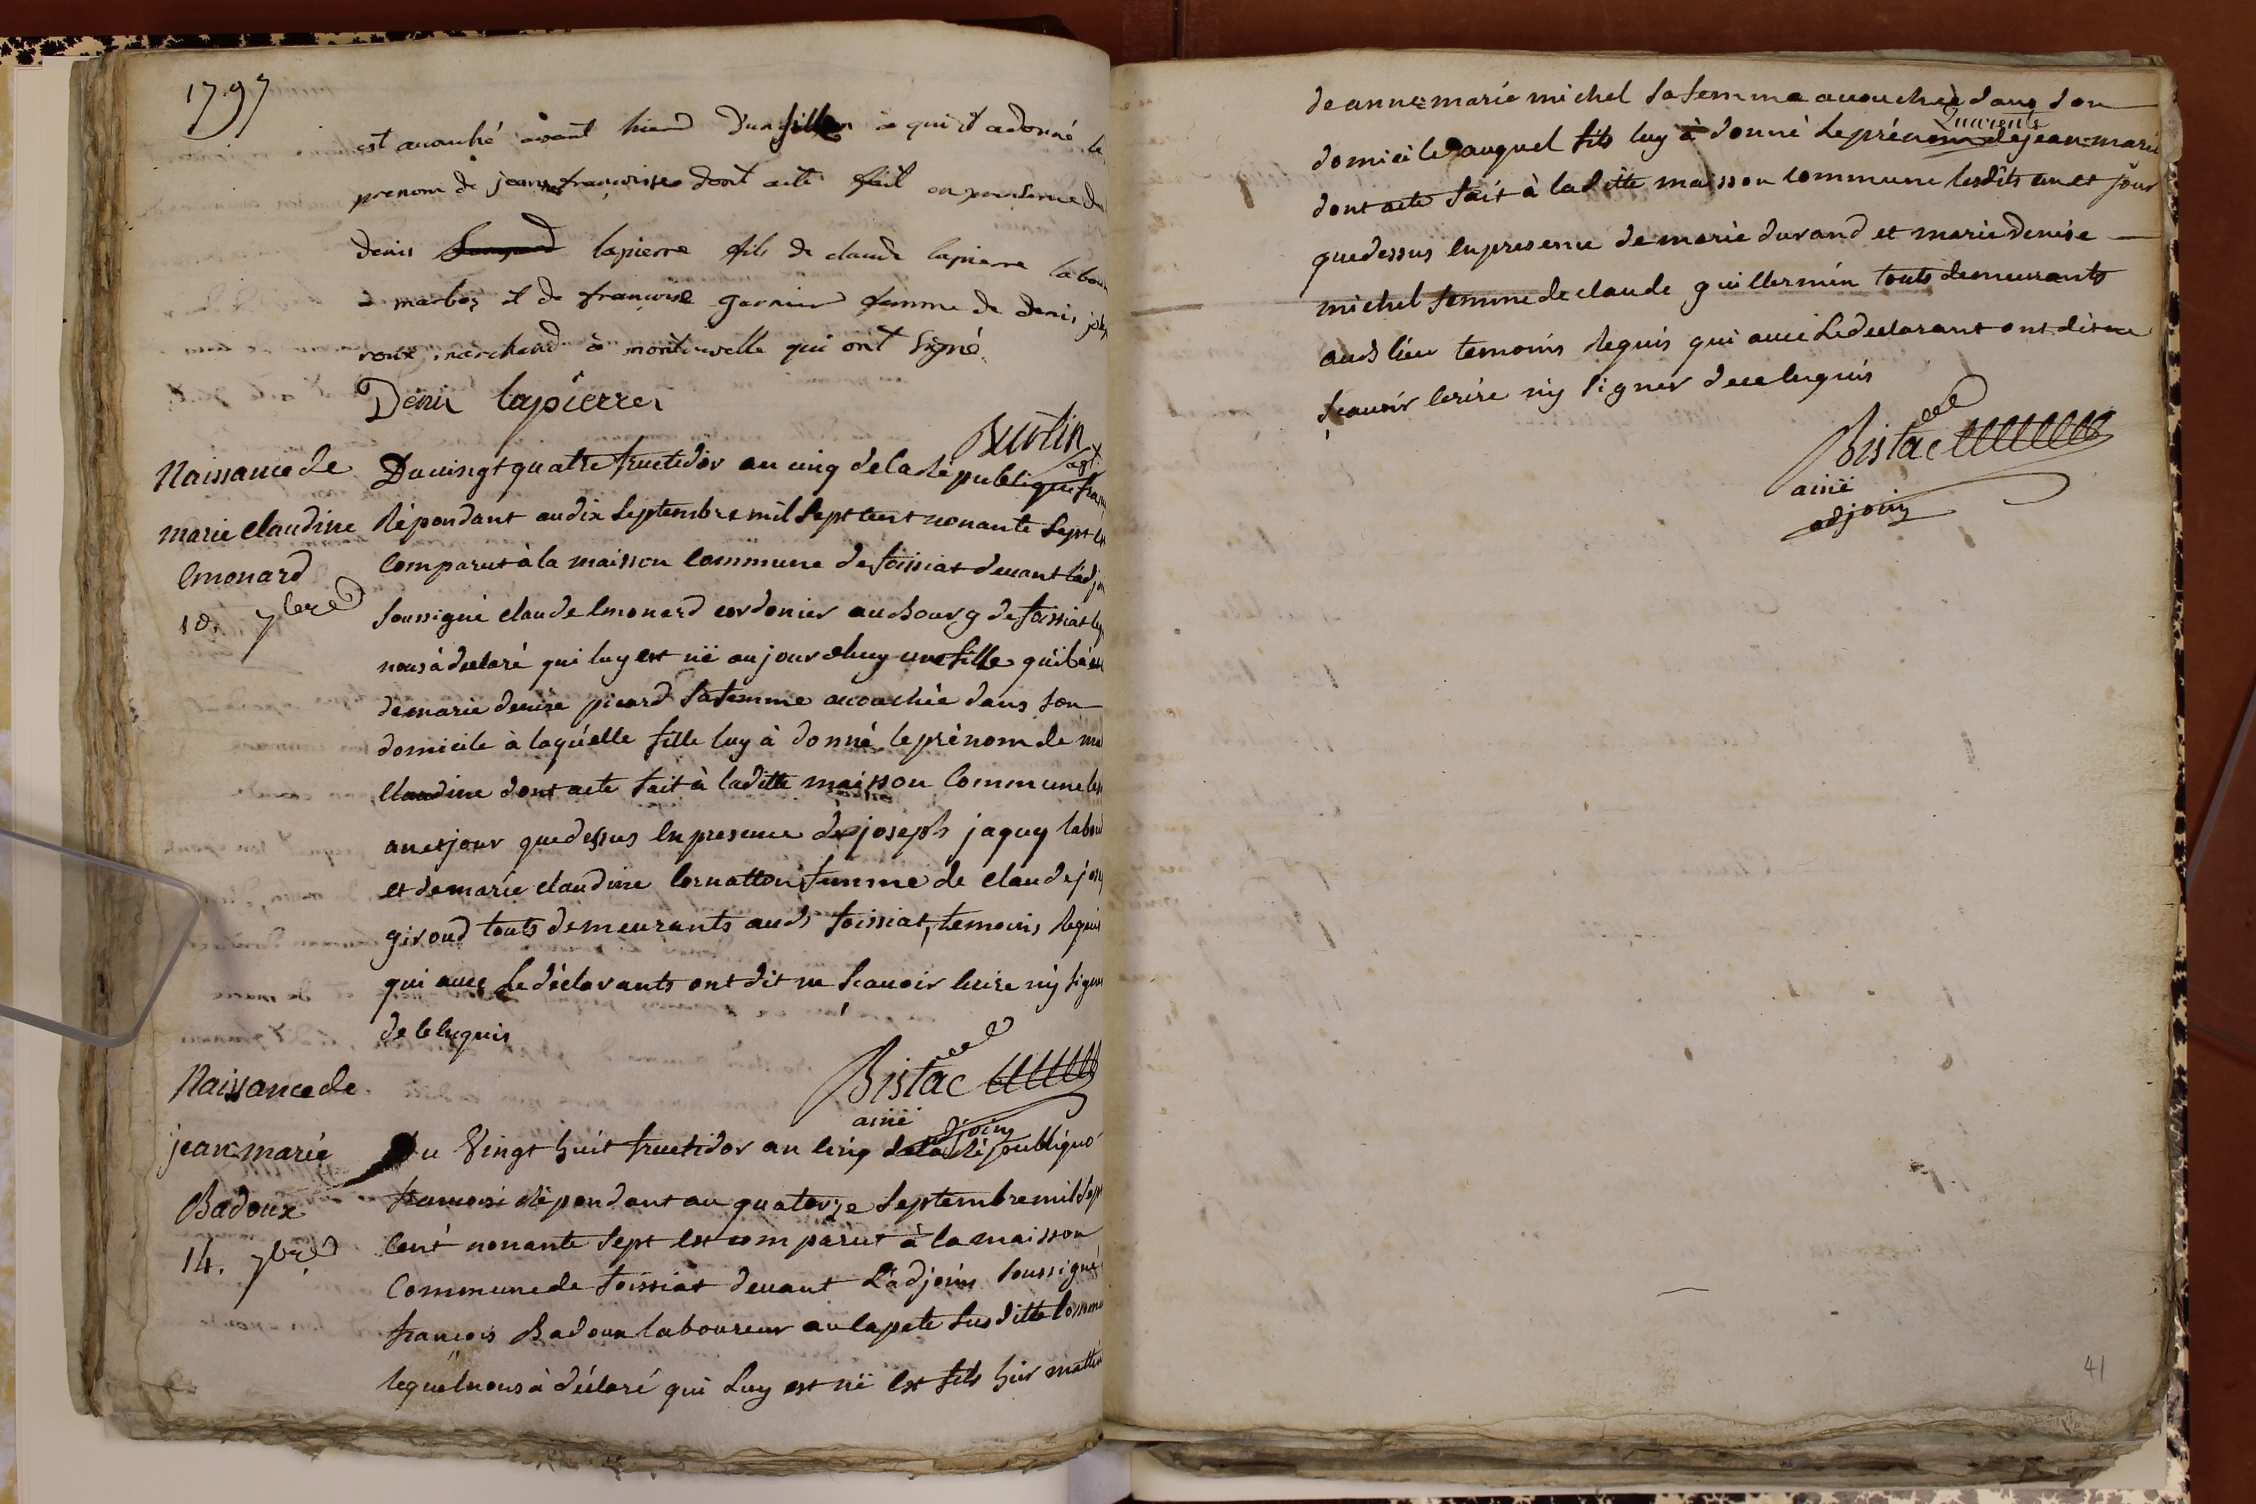 1797
est accouché avant hierd d'un fille a qui il a donné le
prenom de jeanne françoise dont acte fait en presence de
denis lapierre fils de claude lapierre labou
a marboz et de françoise garnier femme de denis
roux marchand a montuvelle qui ont signé
Denis lapierre
Burtin
agt
Naissance de
marie claudine
Emonard
10. 7bre
Du vingt quatre fructidor an cinq de la République fran
Répondant au dix Septembre mil Sept cent nonante Sept
Comparut à la maisson Commune de foissiat devant l'adj
soussigné claude Emonard cordonier au Bourg de foissiat
nous à declaré qui luy est né aujourdhuy une fille qu'il
de marie denise picard Sa femme accouchée dans Son
domicile à laquelle fille luy à donné le prénom de ma
Claudine dont acte fait à laditte maisson Commune les
an et jour que dessus En presence de joseph jaquy labou
et de marie claudine femme de claude jose
giroud touts demeurants auds foissiat, temoins Requis
qui avec Le déclarants ont dit ne Scavoir Ecrire ny signe
de ce Enquis
Bistac
ainé
adjoin
Naissance de
jean marie
Badoux
14. 7bre
Du Vingt huit fructidor an cinq de la République
francoise Répondant au quatorze Septembre mil Sept
Cent nonante Sept Est comparut à la maisson
Commune de foissiat devant L'adjoin Soussigné
françois Badoux laboureur au lapete Susditte Comm
lequel nous à déclaré qui Luy est né Est fils hier mattin
de anne marie michel Sa femme accouchée dans Son
domicile auquel fils luy à donné Le prénom de jean marie
dont acte fait à laditte maisson Commune lesdits an et jour
que dessus En presence de marie durand et marie denise
michel femme de claude guillermin touts demeurants
auds lieu temoins Requis qui avec Le declarant ont dit ne
Scavoir Ecrire ny Signer de ce Enquis
Bistac
ainé
adjoin
41